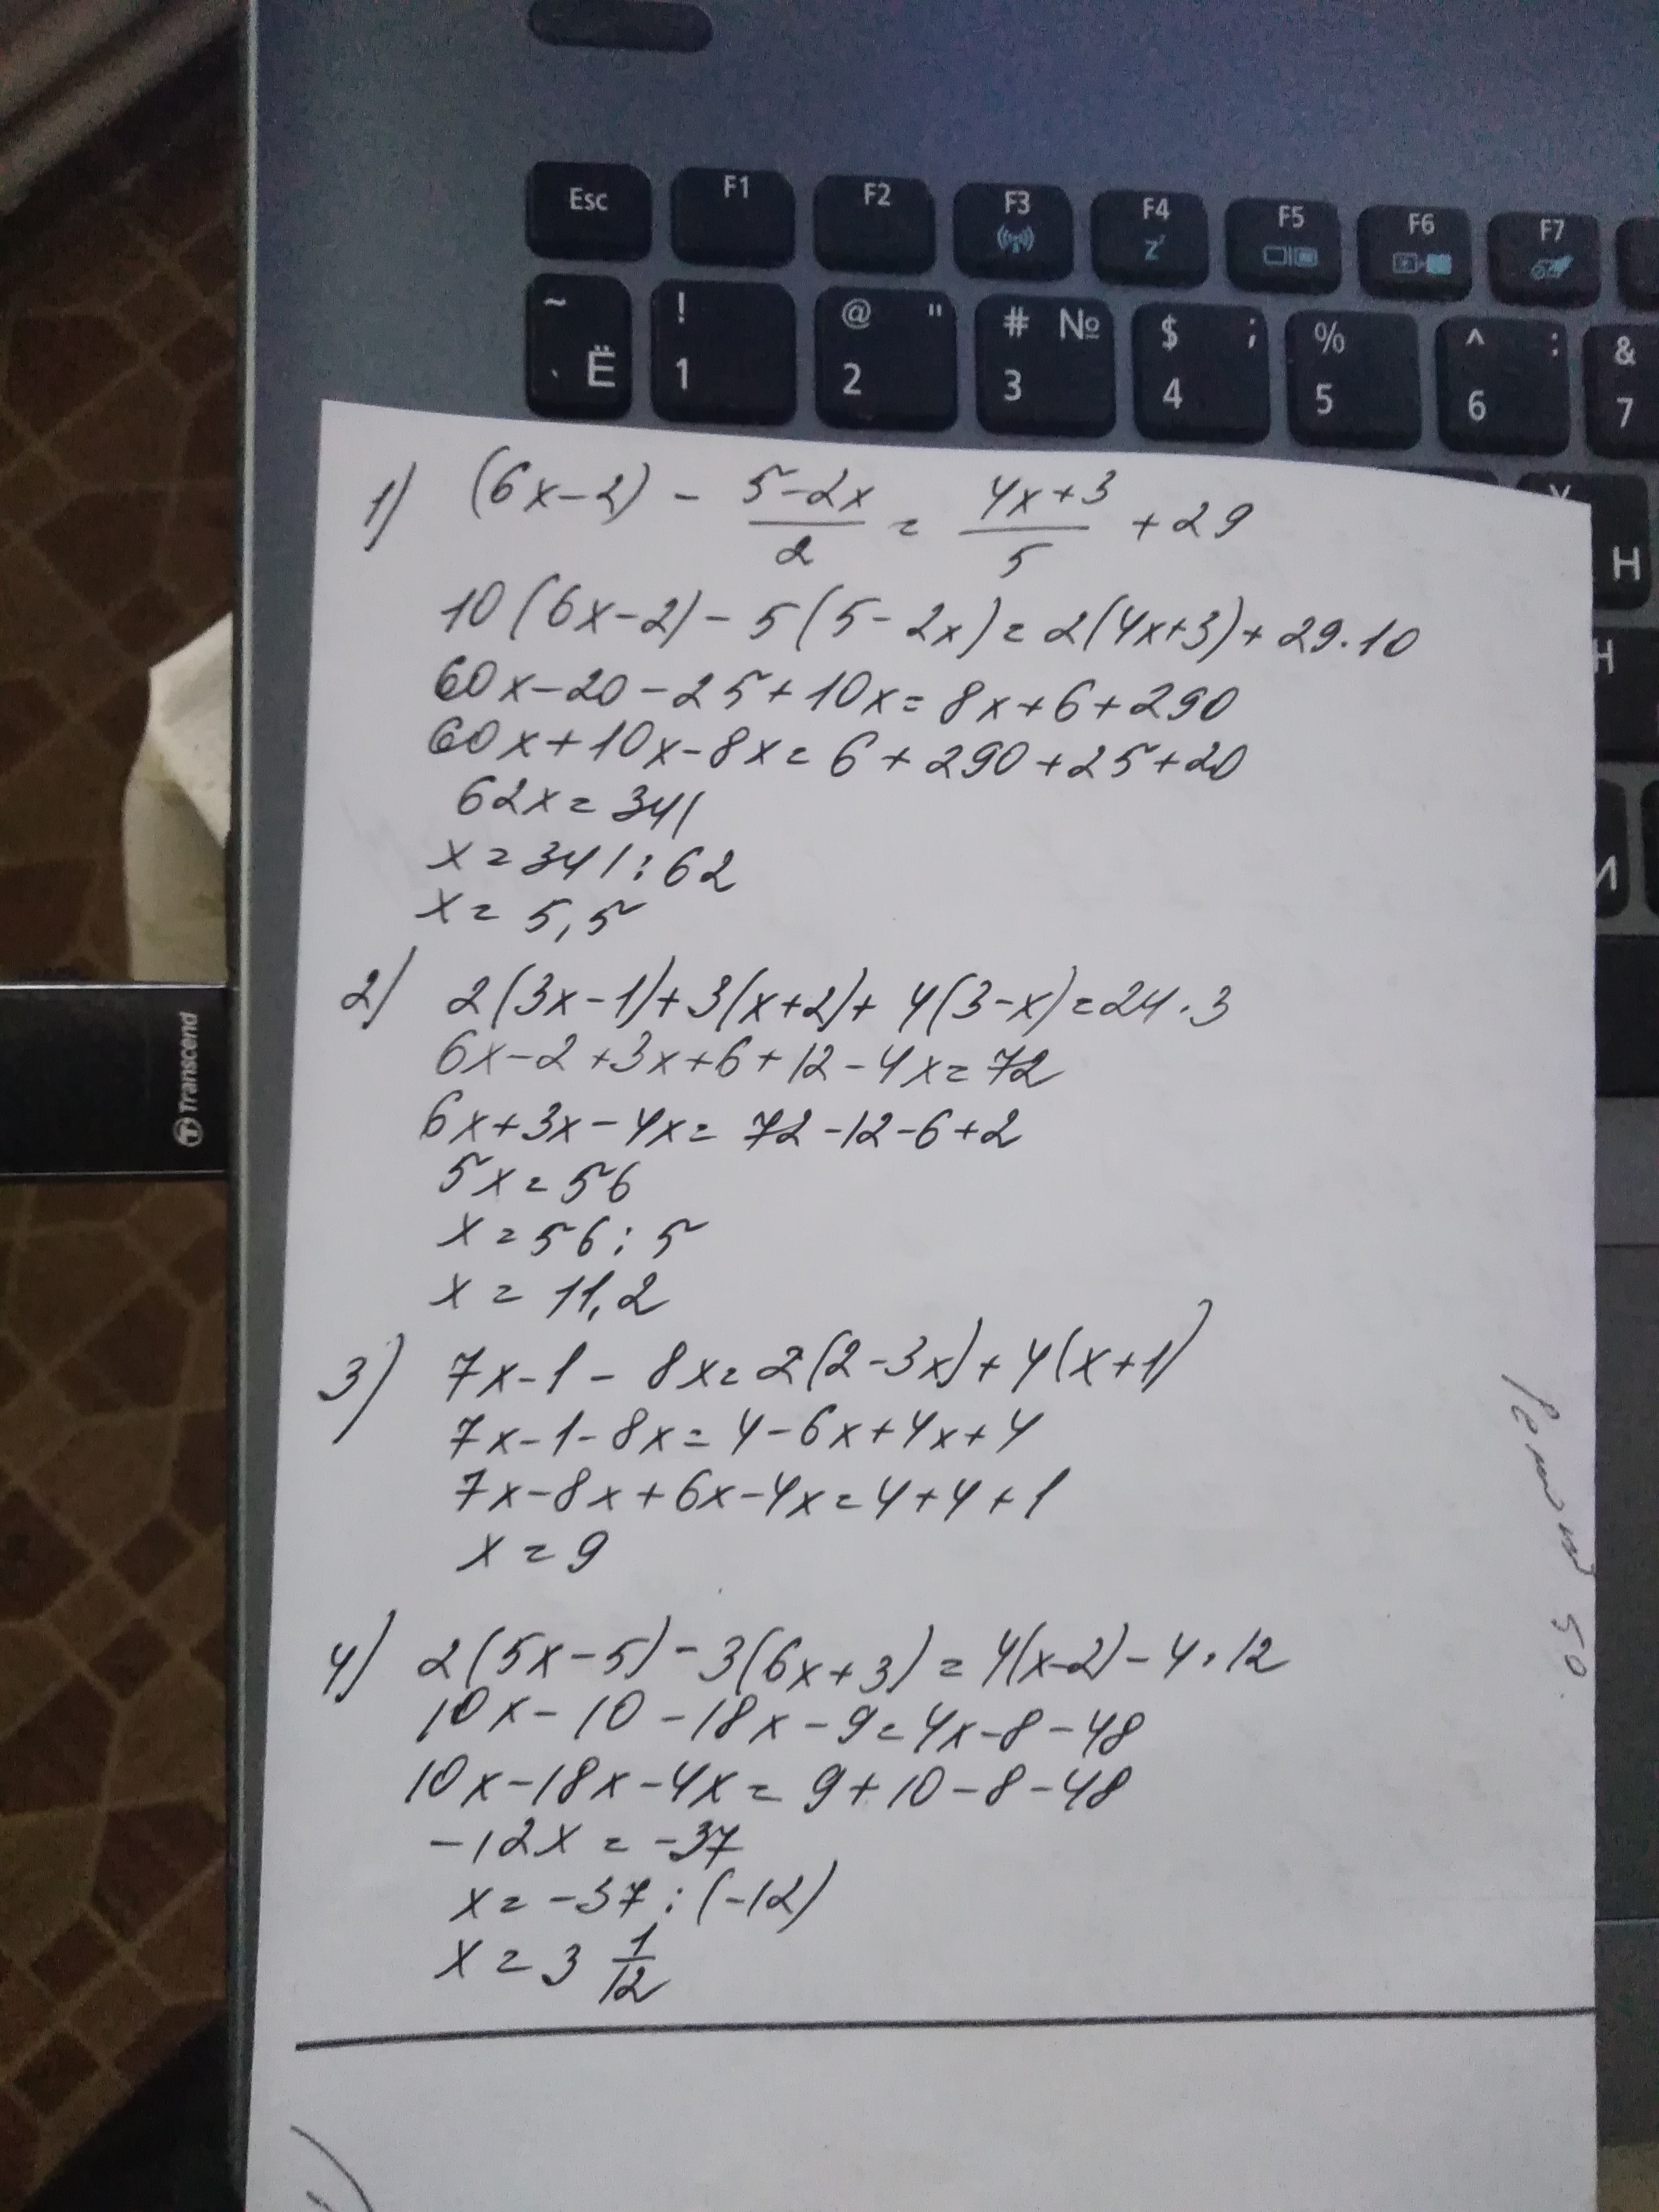 Esc F1 F2 F3 F4 F5 F6 F7
~ ! @ " # № $ ; % ^ : &
Ё 1 2 3 4 5 6 7
Н
1) (6x-2) - (5-2x)/2 = (4x+3)/5 + 29
10(6x-2) - 5(5-2x) = 2(4x+3) + 29·10
60x-20-25+10x=8x+6+290
60x+10x-8x=6+290+25+20
62x=341
x=341:62
x=5,5
2) 2(3x-1)+3(x+2)+4(3-x)=24·3
6x-2+3x+6+12-4x=72
6x+3x-4x=72-12-6+2
5x=56
x=56:5
x=11,2
3) 7x-1-8x=2(2-3x)+4(x+1)
7x-1-8x=4-6x+4x+4
7x-8x+6x-4x=4+4+1
x=9
4) 2(5x-5)-3(6x+3)=4(x-2)-4·12
10x-10-18x-9=4x-8-48
10x-18x-4x=9+10-8-48
-12x=-37
x=-37:(-12)
x=3 1/12
Transcend